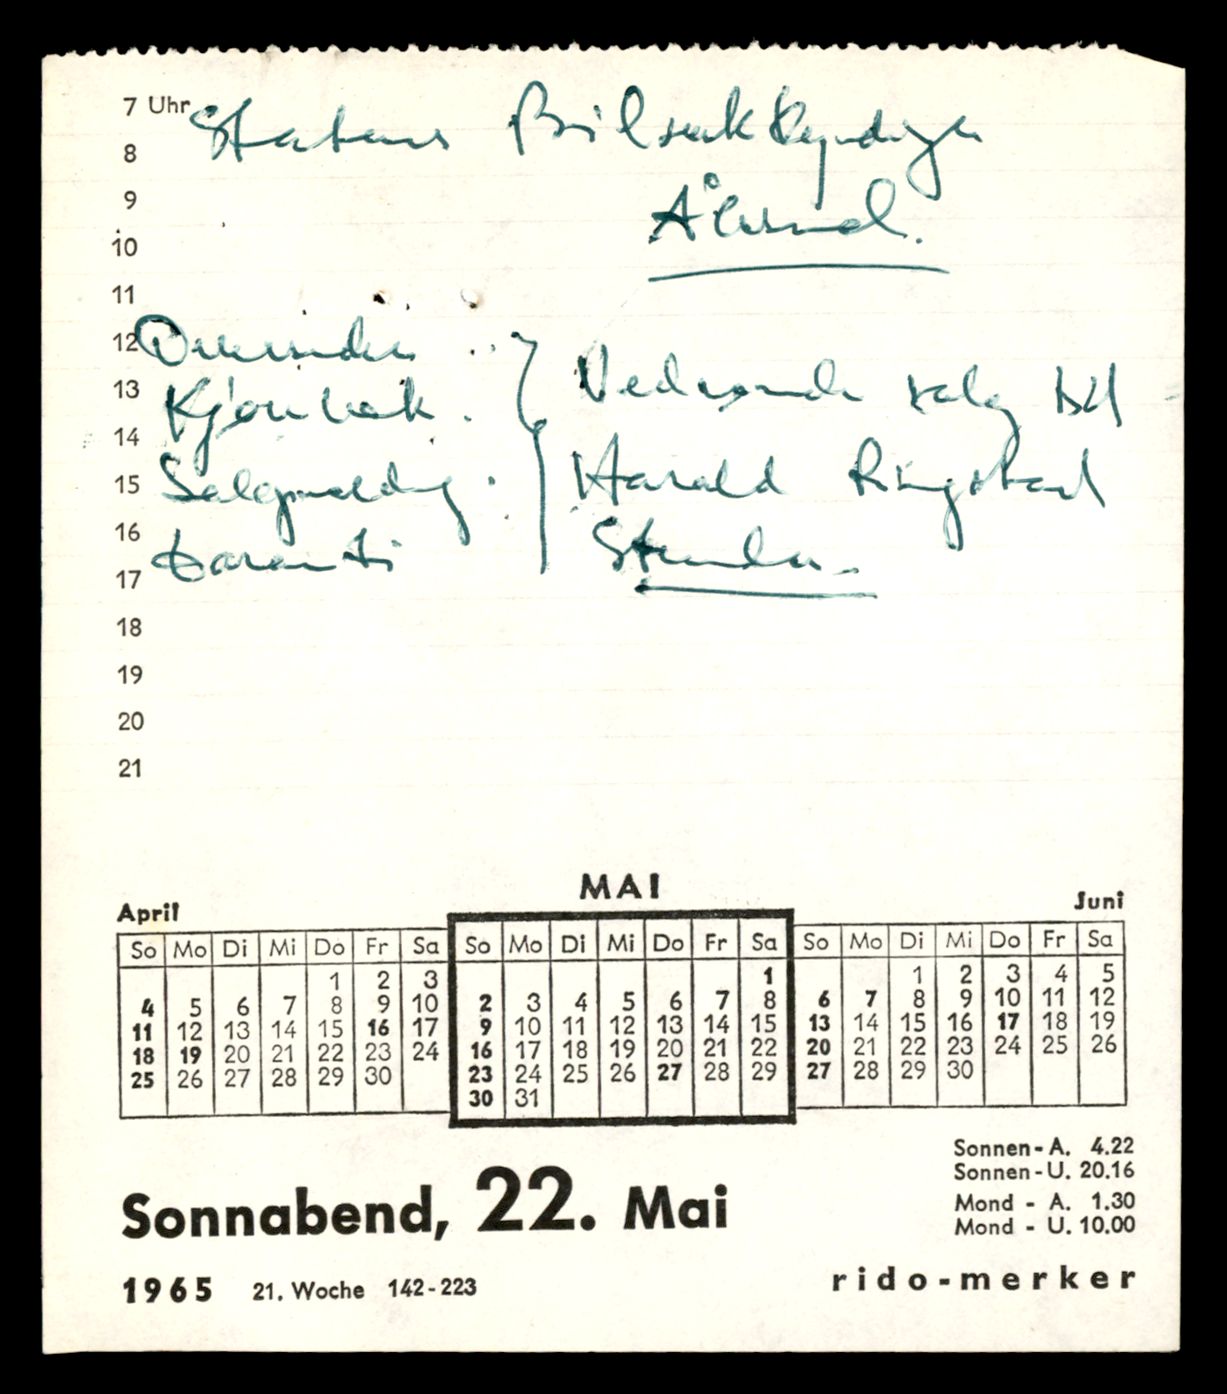 7 Uhr Statens Bilsakkyndige
8
9 Ålesund.
10
11
12
13 Kjørebok. Vedrørende salg bil
14
15 Salgsmelding. Harald Ringstad
16 Stranda.
17 Garanti
18
19
20
21
MAI
April Juni
So Mo Di Mi Do Fr Sa So Mo Di Mi Do Fr Sa So Mo Di Mi Do Fr Sa
1 2 3 1 1 2 3 4 5
4 5 6 7 8 9 10 2 3 4 5 6 7 8 6 7 8 9 10 11 12
11 12 13 14 15 16 17 9 10 11 12 13 14 15 13 14 15 16 17 18 19
18 19 20 21 22 23 24 16 17 18 19 20 21 22 20 21 22 23 24 25 26
25 26 27 28 29 30 23 24 25 26 27 28 29 27 28 29 30
30 31
Sonnen-A. 4.22
Sonnen-U. 20.16
Mond - A. 1.30
Mond - U. 10.00
Sonnabend, 22. Mai
1965 21. Woche 142-223 rido-merker